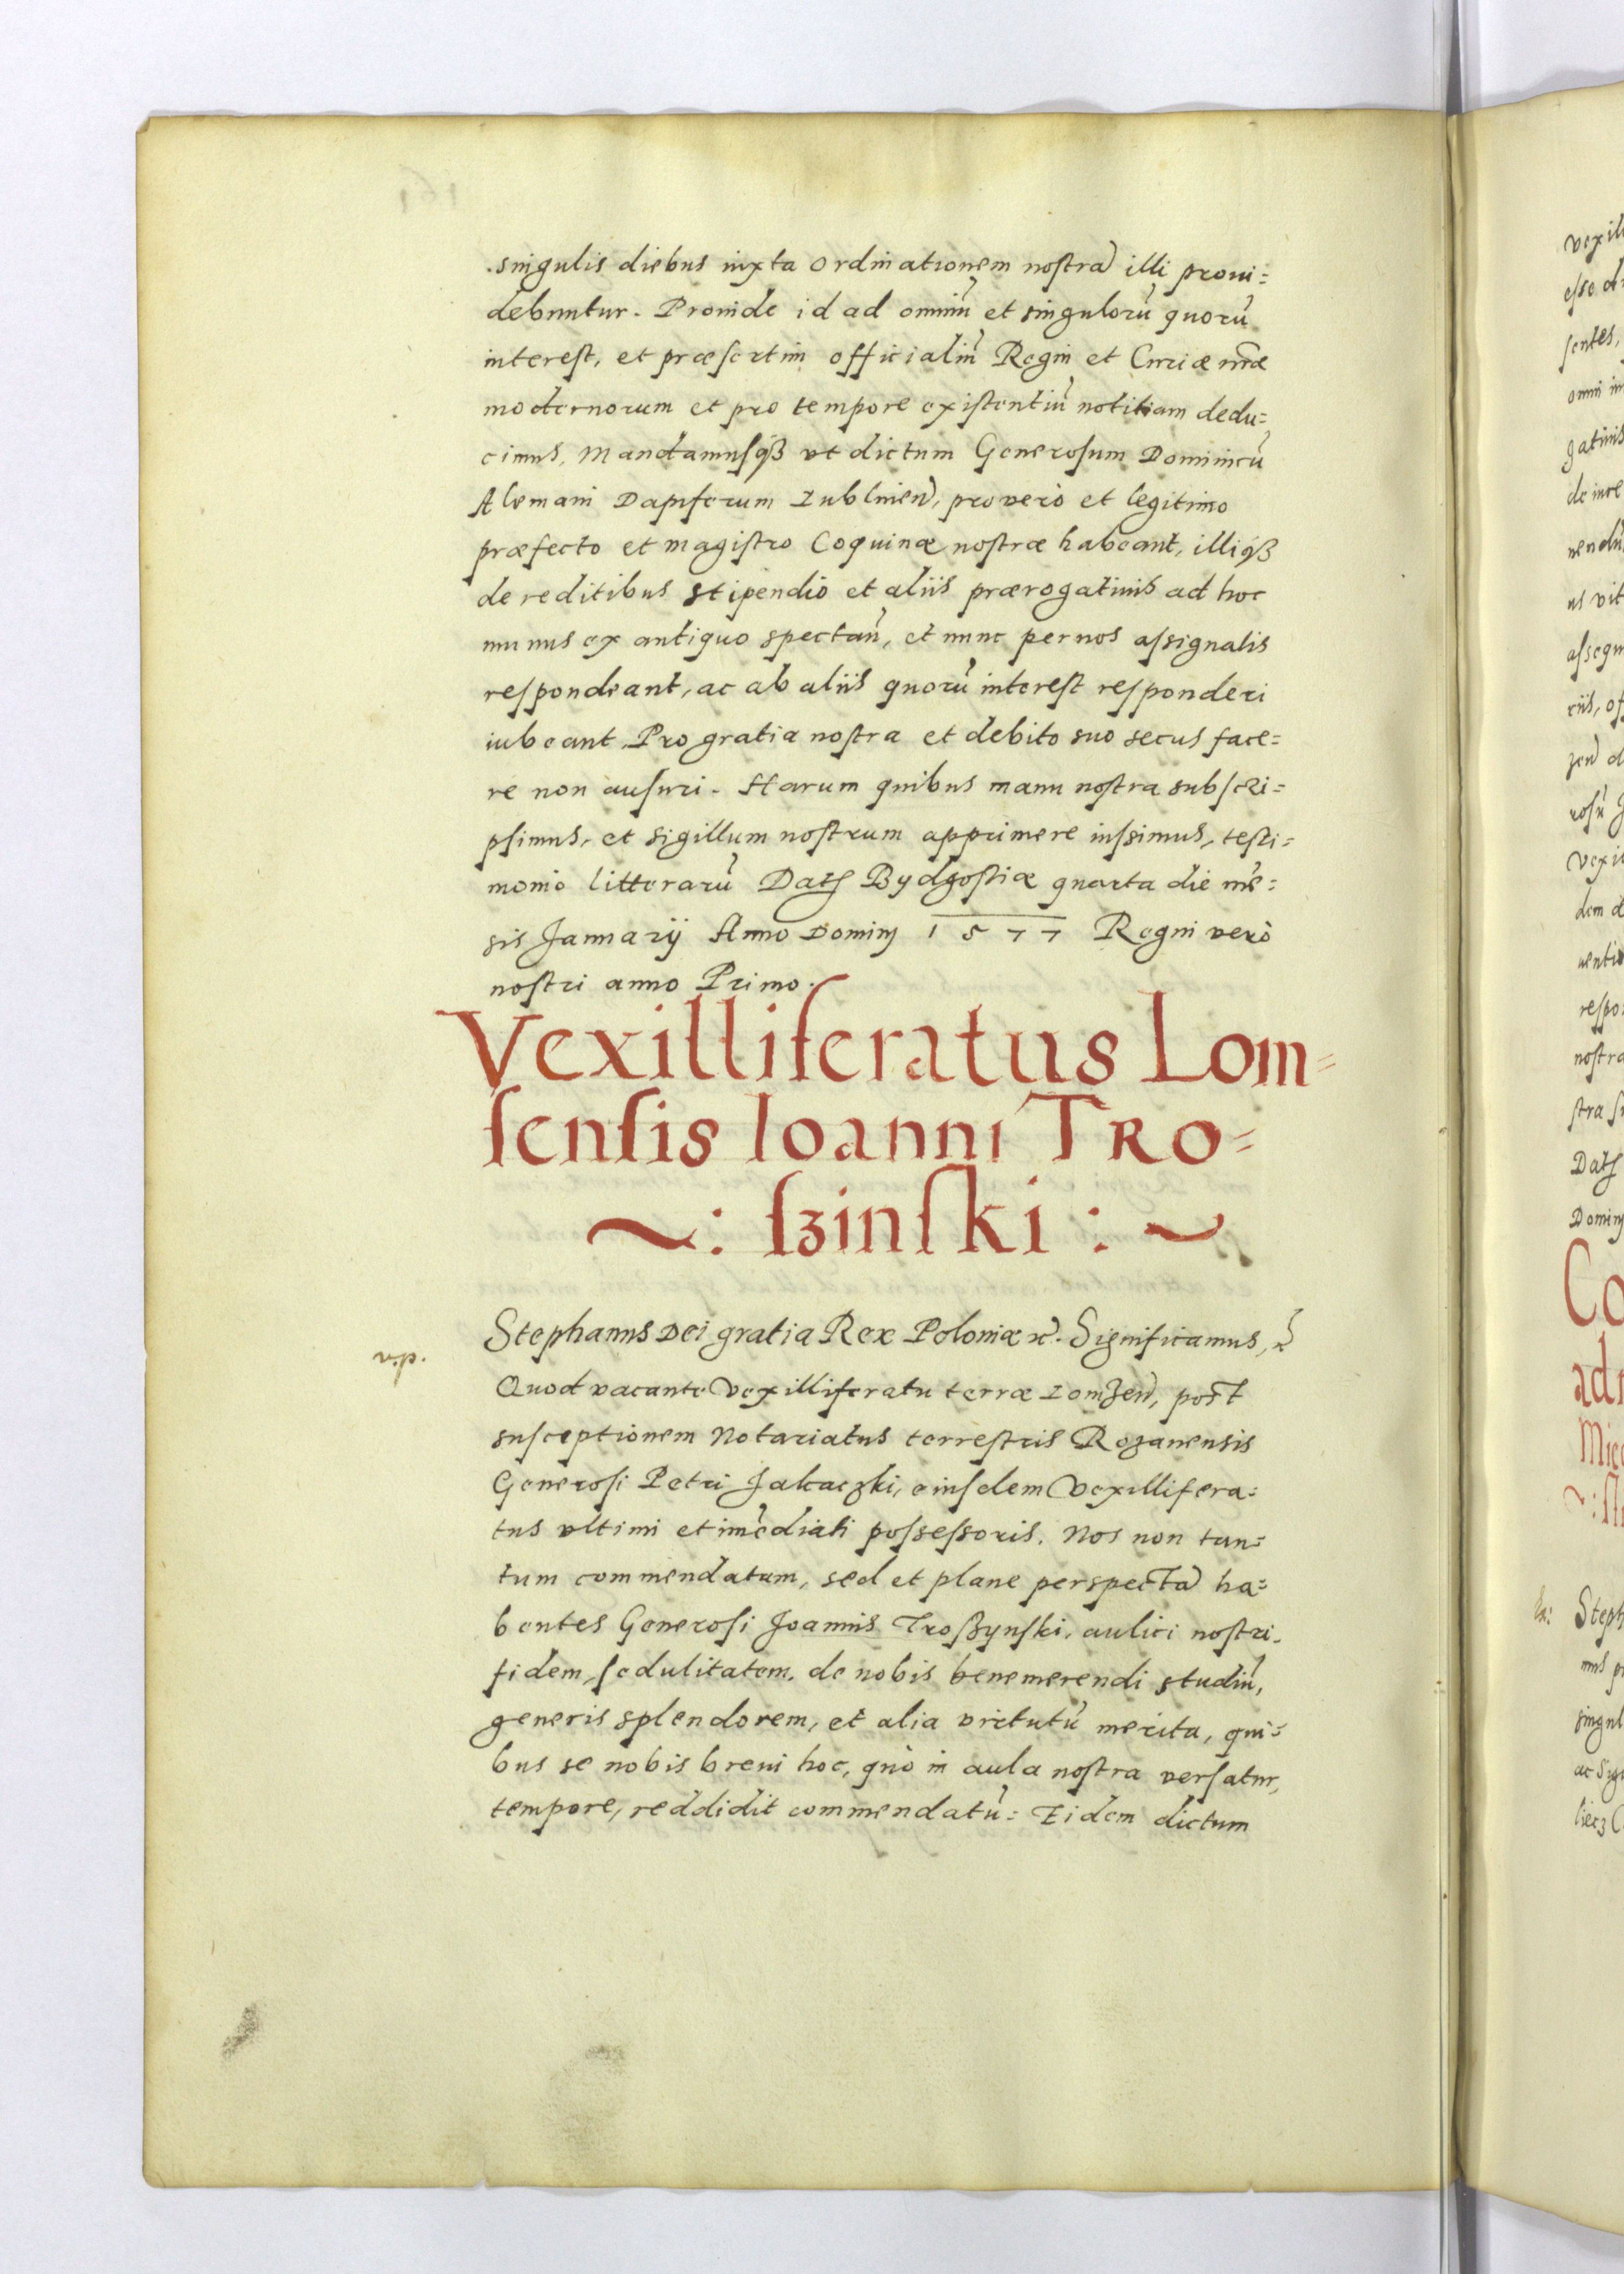 singulis diebus iuxta ordinationem nostrã illi proui=
debuntur. Proinde id ad omniũ et singulorũ quorũ
interest, et præsertim officialiũ Regni et Curiæ nr̃æ
modernorum et pro tempore existentiũ notitiam dedu=
cimus. Mandamusqꝫ ut dictum Generosum Dominicũ
Alemani Dapiferum Lublinen̄, pro vero et legitimo
præfecto et magistro Coquinæ nostræ habeant, illiqꝫ
de reditibus stipendio et aliis prærogatiuis ad hoc
munus ex antiquo spectan̄, et nunc per nos assignatis
respondeant, ac ab aliis quorũ interest responderi
iubeant. Pro gratia nostra et debito suo secus face=
re non ausuri. Harum quibus manu nostra subscri=
psimus, et sigillum nostrum apprimere iussimus, testi=
monio litterarũ Datꝭ Bydgostiæ quarta die mẽ=
sis Januarij Anno Dominj 1577 Regni verò
nostri anno Primo.
Vexilliferatus Lom=
senſis Ioanni TRO=
~: ſzinſki : ~
Stephanus Dei gratia Rex Poloniæ ꝛc̄. Significamus, ꝛc̄
Quod vacante Vexilliferatu terræ Lomzen̄, post
susceptionem Notariatus terrestris Rozanensis
Generosi Petri Jalcaczki, eiusdem Vexillifera=
tus ultimi et im̃ediati possessoris. Nos non tan=
tum commendatam, sed et plane perspectã ha=
bentes Generosi Joannis Troszynski, aulici nostri,
fidem, sedulitatem, de nobis benemerendi studiũ,
generis splendorem, et alia virtutũ merita, qui=
bus se nobis breui hoc, quò in aula nostra versatur,
tempore, reddidit commendatũ: Eidem dictum